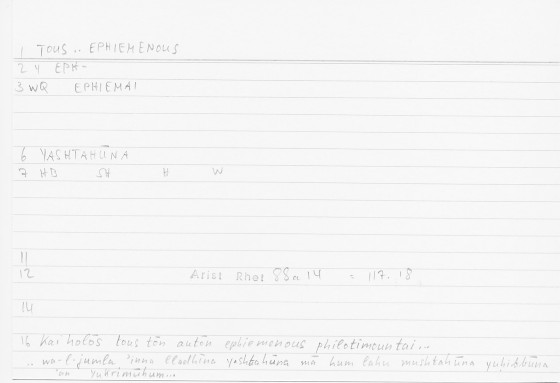 1 TOUS .. EPHIEMENOUS
2 4 EPH-
3 WQ EPHIEMAI
6 YASHTAHŪNA
7 HD SH H W
11
12 Arist Rhet 88a 14 = 117. 18
14
16 kai holōs tous tōn autōn ephiemenous philotimountai...
.. wa-l-jumla 'inna lladhīna yashtahūna mā hum lahu mushtahūna yuḥibbūna
'an yukrimūhum...